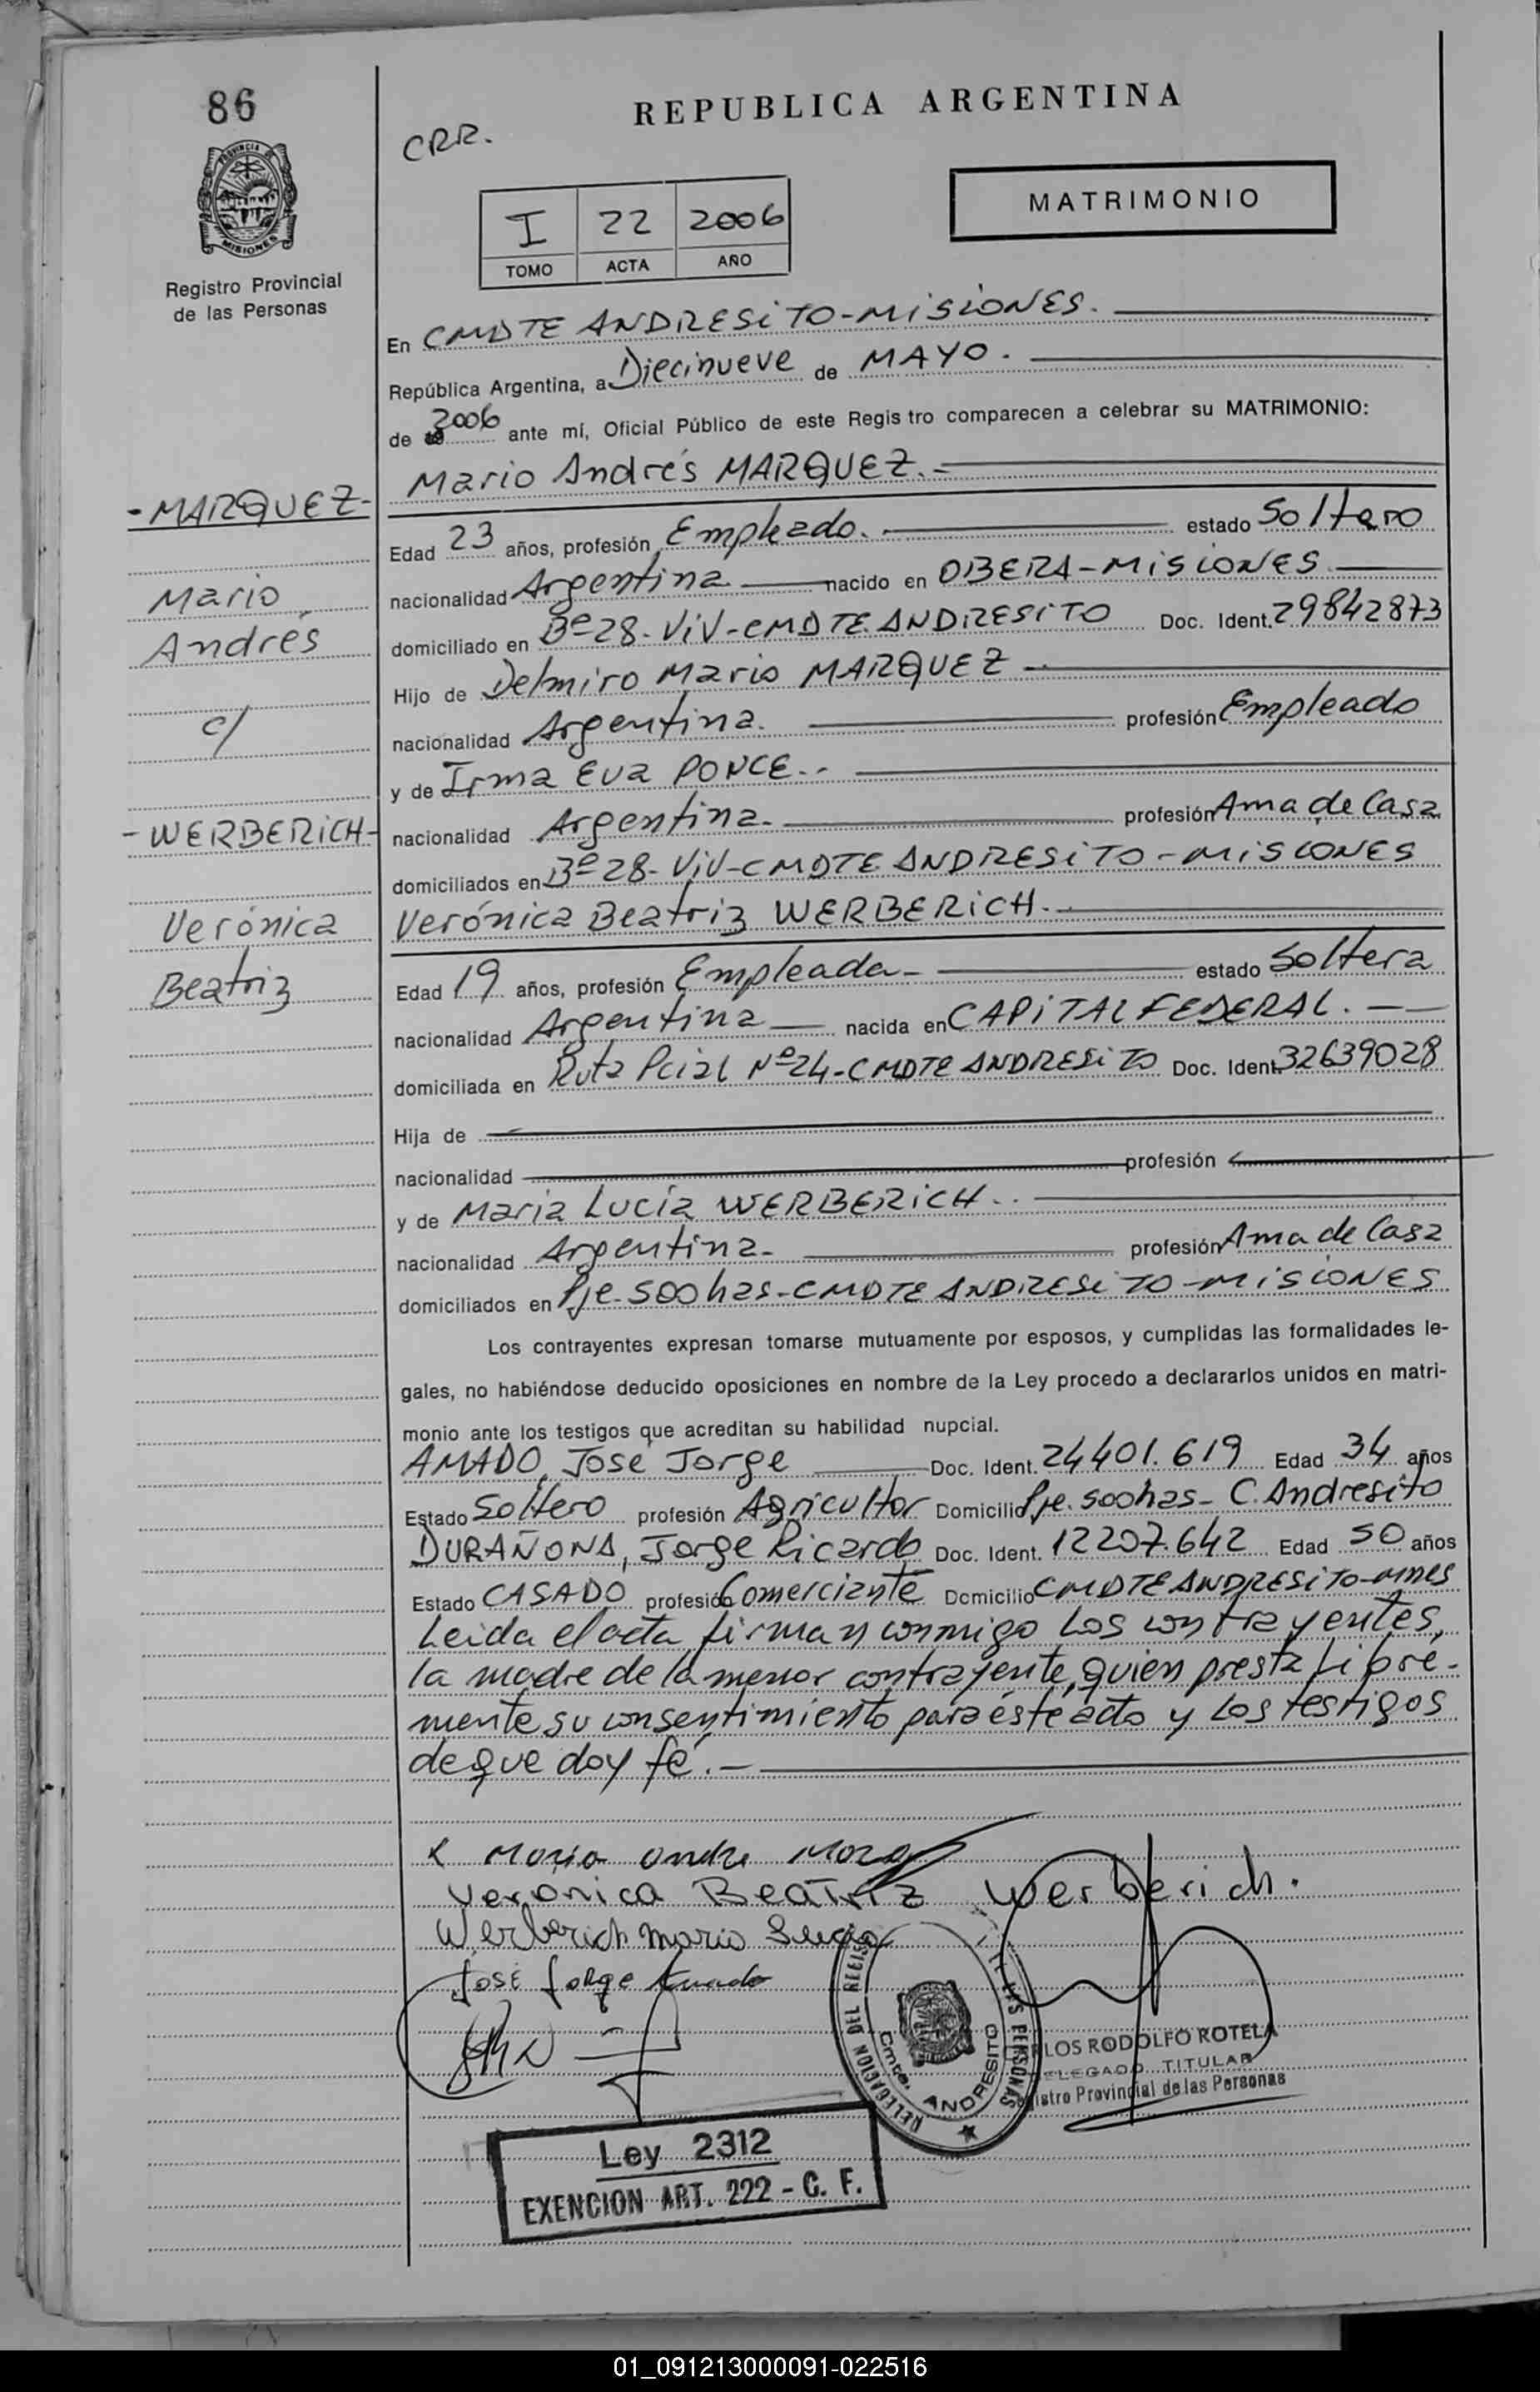 86
REPUBLICA ARGENTINA
CRR.
PROVINCIA DE
MISIONES
Registro Provincial
de las Personas
I 22 2006
TOMO ACTA AÑO
MATRIMONIO
En CMDTE ANDRESITO-MISIONES.
República Argentina, a Diecinueve de MAYO.
de 2006 ante mí, Oficial Público de este Regis tro comparecen a celebrar su MATRIMONIO:
Mario Andrés MARQUEZ.-
-MARQUEZ-
Mario
Andrés
c/
-WERBERICH-
Verónica
Beatriz
Edad 23 años, profesión Empleado. estado Soltero
nacionalidad Argentina nacido en OBERA-MISIONES
domiciliado en Bº28-VIV-CMDTE ANDRESITO Doc. Ident. 29842873
Hijo de Delmiro Mario MARQUEZ
nacionalidad Argentina. profesión Empleado
y de Irma Eva PONCE.-
nacionalidad Argentina- profesión Ama de Casa
domiciliados en Bº28-VIV-CMDTE ANDRESITO-MISIONES
Verónica Beatriz WERBERICH.-
Edad 19 años, profesión Empleada- estado Soltera
nacionalidad Argentina nacida en CAPITAL FEDERAL.
domiciliada en Ruta Pcial Nº24-CMDTE ANDRESITO Doc. Ident. 32639028
Hija de
nacionalidad profesión
y de María Lucía WERBERICH..
nacionalidad Argentina- profesión Ama de Casa
domiciliados en Pje-500has-CMDTE ANDRESITO-MISIONES
Los contrayentes expresan tomarse mutuamente por esposos, y cumplidas las formalidades le-
gales, no habiéndose deducido oposiciones en nombre de la Ley procedo a declararlos unidos en matri-
monio ante los testigos que acreditan su habilidad nupcial.
AMADO, José Jorge Doc. Ident. 24401.619 Edad 34 años
Estado Soltero profesión Agricultor Domicilio Pje.500has- C.Andresito
DURAÑONA, Jorge Ricardo Doc. Ident. 12207.642 Edad 50 años
Estado CASADO profesión Comerciante Domicilio CMDTE ANDRESITO-Mnes
Leida el acta, firman conmigo los contrayentes,
la madre de la menor contrayente, quien presta libre-
mente su consentimiento para éste acto y los testigos
de que doy fé.-
Verónica Beatriz Werberich.
Werberich Maria
José Jorge Amado
DELEGACION DEL LAS PERSONAS
Cmte. ANDRESITO
RODOLFO ROTELA
TITULAR
Provincial de las Personas
Ley 2312
EXENCION ART. 222 - C. F.
01_091213000091-022516